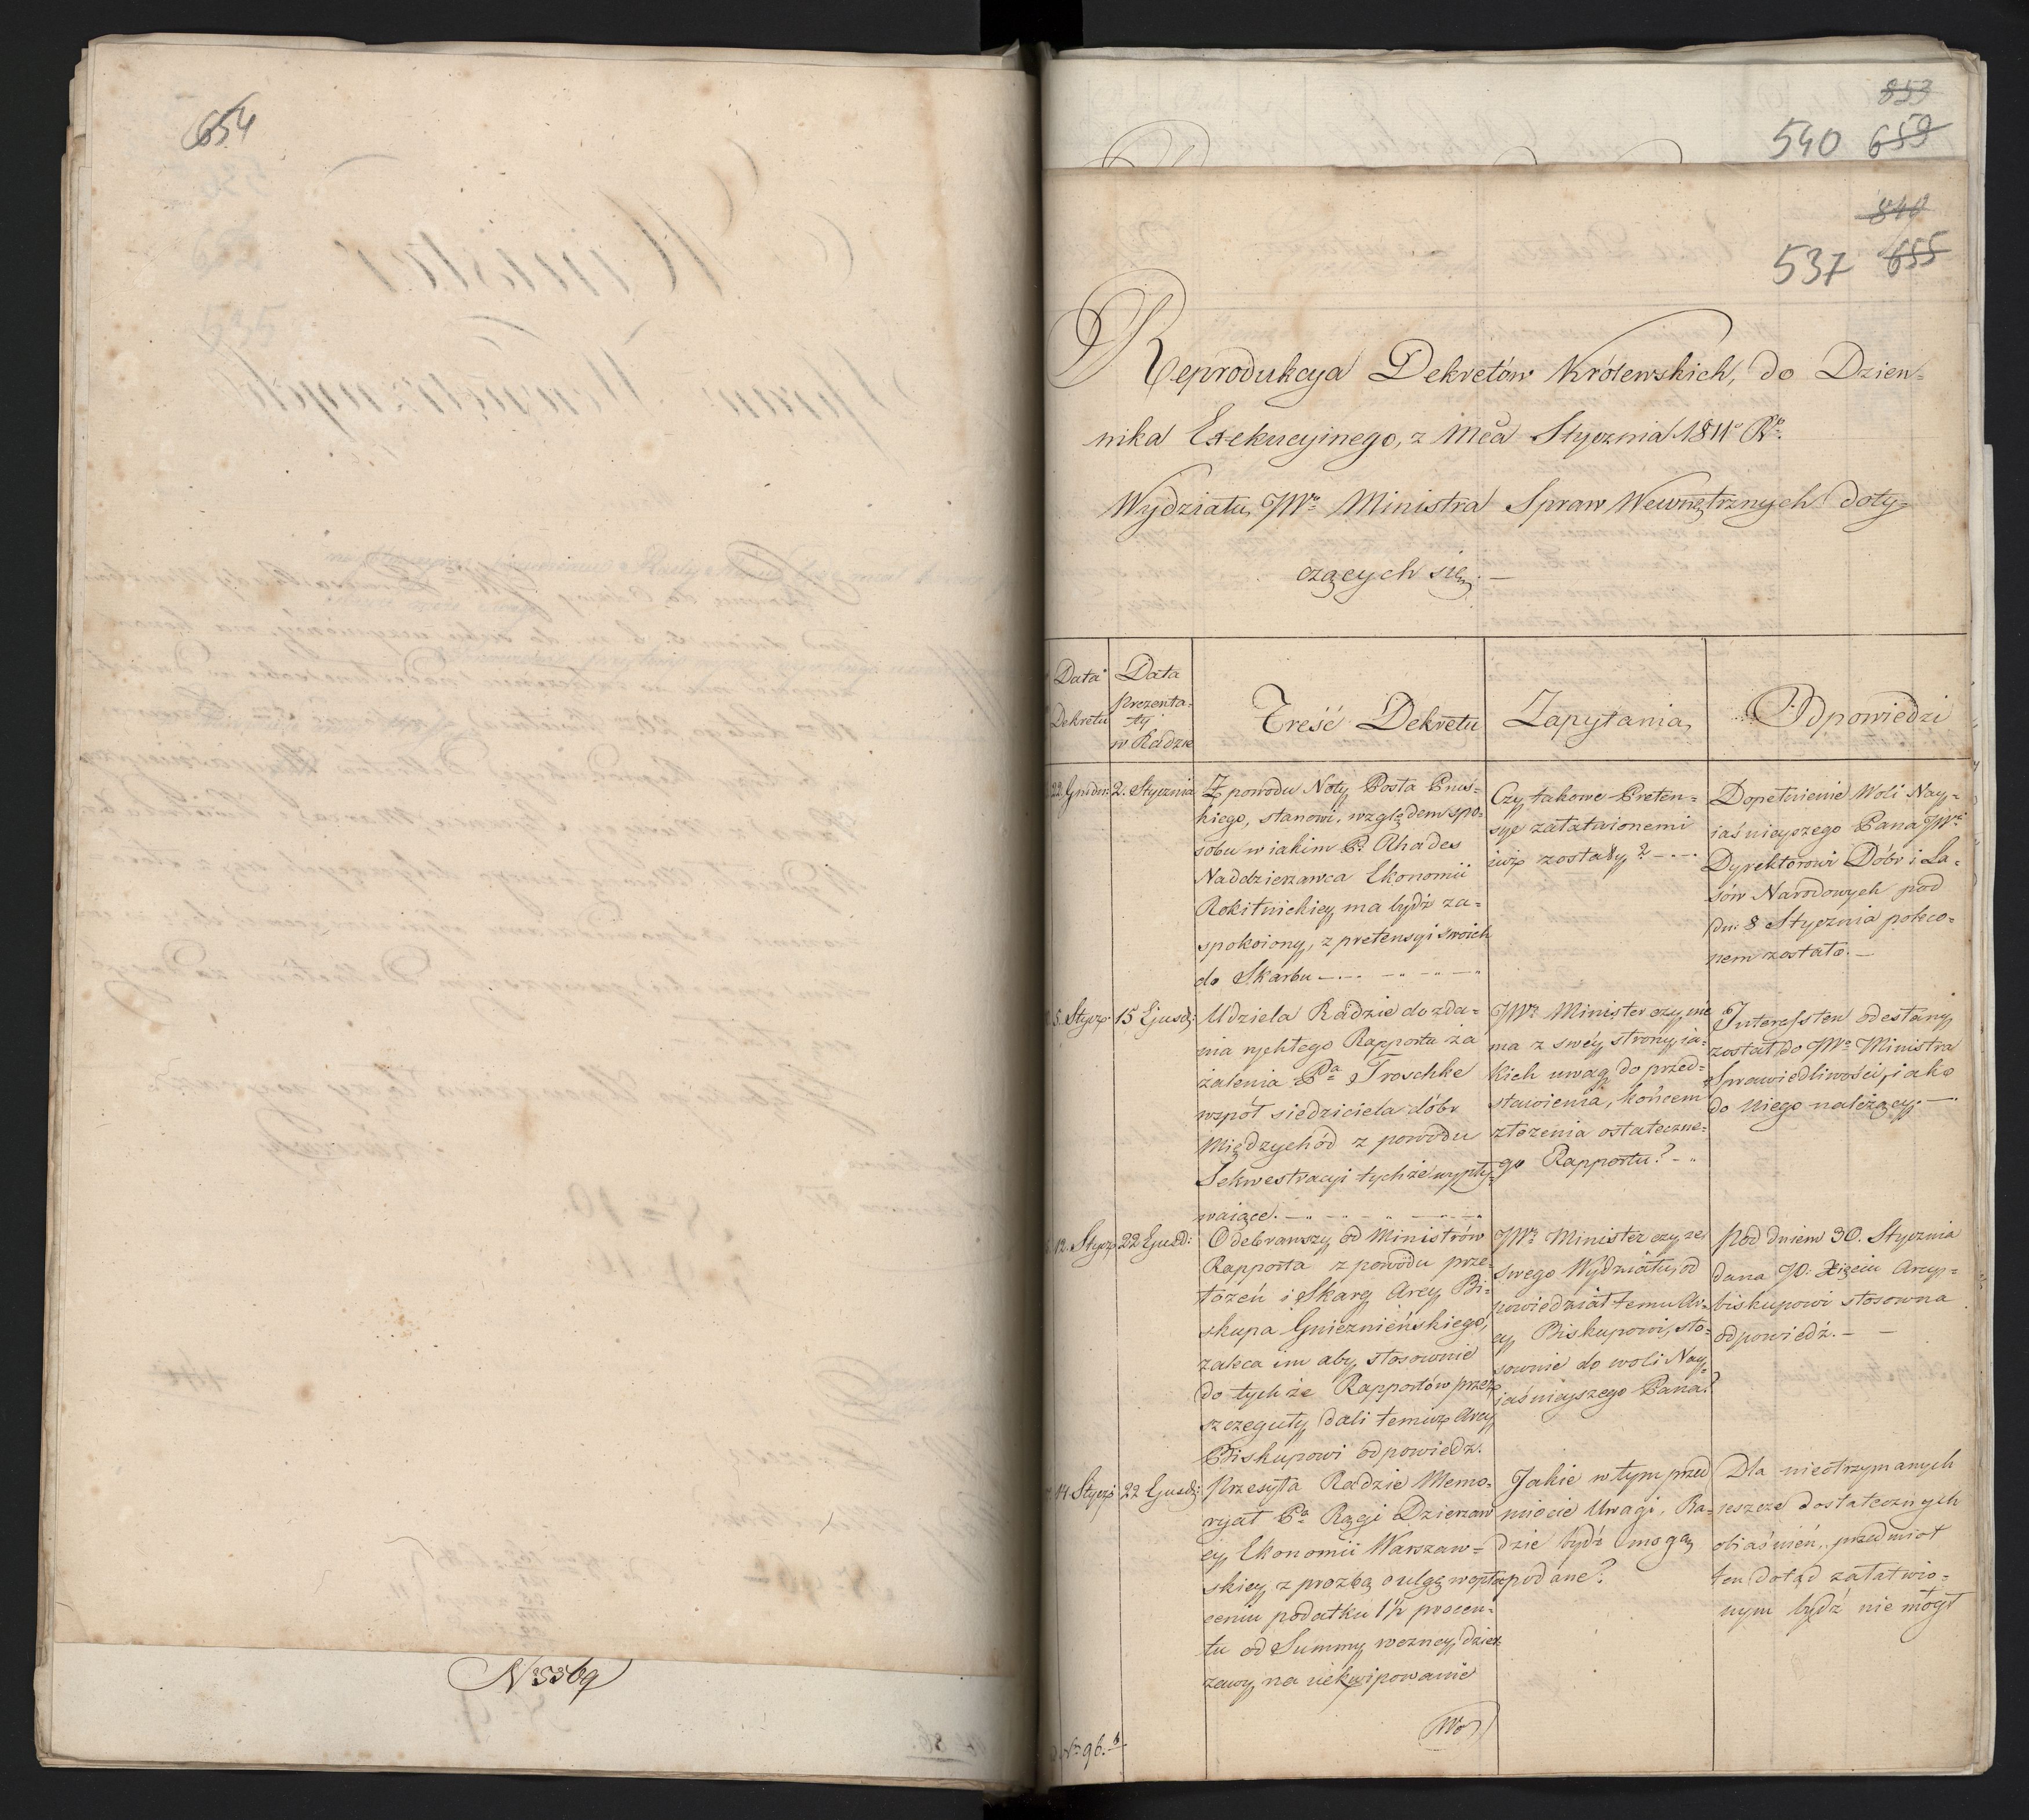 654
No 3369
853
540 659
840
537 655
Reprodukcya Dekretów Królewskich, do Dzien-
nika Exekucyinego, z Mca Stycznia 1811o Ro
Wydziału JWo Ministra Spraw Wewnętrznych doty-
czących się. —
Data Dekretu
Data Prezenta-
ty w Radzie
Treść Dekretu
Zapytania
Odpowiedzi
22. Grudn:
2. Stycznia
Z powodu Noty Posła Prus-
kiego, stanowi, względem spo-
sobu w iakim P. Rhades
Naddzierzawca Ekonomii
Rokitnickiey ma bydź za-
spokoiony, z pretensyi swoich
do Skarbu
Czy takowe Preten-
sye załatwionemi
iuż zostały?
Dopełnienie Woli Nay-
iaśnieyszego Pana JWu
Dyrektorowi Dóbr i La-
sów Narodowych pod
dn: 8 Stycznia poleco-
nem zostało. —
5. Stycz:
15 Ejusd:
Udziela Radzie do zda-
nia rychłego Rapportu za
żalenia Pa Troschke
wspoł siedziciela dóbr
Międzychód z powodu
Sekwestracyi tychże wypły-
waiące.
JWo Minister czy nie
ma z swéy strony ia-
kich uwag do przed-
stawienia, końcem
złożenia ostateczne-
go Rapportu?
Interessten odesłany
został do JWo Ministra
Sprawiedliwości, iako
do Niego należący. —
12. Stycz
22 Ejusd:
Odebrawszy od Ministrów
Rapporta z powodu prze-
łożeń i Skarg Arcy Bi-
skupa Gnieznieńskiego,
zaleca im aby stosownie
do tychże Rapportów przez
szczeguły dali temuż Arcy
Biskupowi odpowiedz.
JWo Minister czy ze
swego Wydziału, od
powiedział temu Ar-
cy Biskupowi, sto-
sownie do woli Nay-
iaśnieyszego Pana?
Pod dniem 30. Stycznia
dana JO: Xięciu Arcy-
biskupowi stosowna
odpowiedź. — —
14. Stycz
22 Ejusd:
Przesyła Radzie Memo-
ryał Pa Rągi Dzierzaw
cy Ekonomii Warszaw-
skiey z prozbą o ulgę w opła
ceniu podatku 1½ procen-
tu od Summy roczney dzier
zawy na uiekwipowanie
Jakie w tym przed
miocie Uwagi, Ra-
dzie bydź mogą
podane?
Dla nieotrzymanych
ieszcze dostatecznych
obiaśnień, przedmiot
ten dotąd załatwio-
nym bydź nie mógł
No 96.